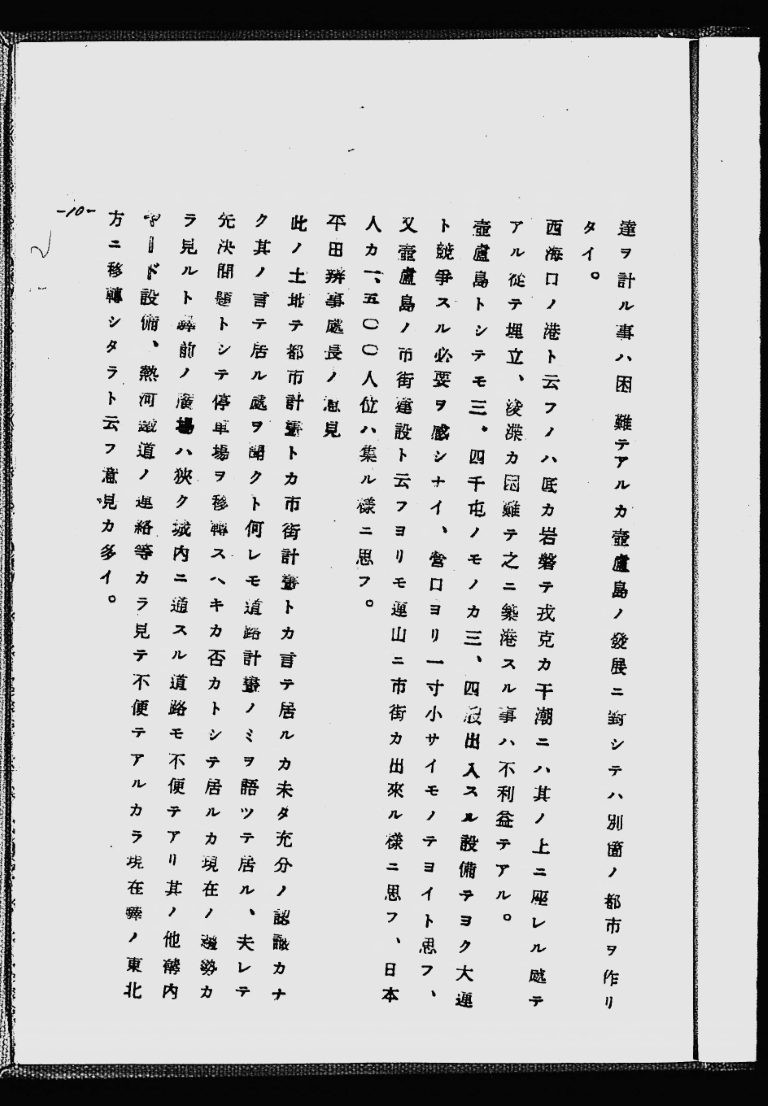 達ヲ計ル事ハ困難テアルカ壺盧島ノ發展ニ對シテハ別箇ノ都市ヲ作リ
タイ。
西海口ノ港ト云フノハ底カ岩磐テ戎克カ干潮ニハ其ノ上ニ座レル處テ
アル從テ埋立、浚渫カ困難テ之ニ築港スル事ハ不利益テアル。
壺盧島トシテモ三。四千屯ノモノカ三、四艘出入スル設備テヨク大連
ト競爭スル必要ヲ感シナイ、營口ヨリ一寸小サイモノテヨイト思フ、
又壺盧島ノ市街建設ト云フヨリモ連山ニ市街カ出來ル樣ニ思フ、日本
人カ一、五〇〇人位ハ集ル樣ニ思フ。
平田辨事處長ノ意見
此ノ土地テ都市計畫トカ市街計畫トカ言テ居ルカ未タ充分ノ認識カナ
ク其ノ言テ居ル處ヲ聞クト何レモ道路計畫ノミヲ語ツテ居ル、夫レテ
先決問題トシテ停車場ヲ移轉スヘキカ否カトシテ居ルカ現在ノ趨勢カ
ラ見ルト驛前ノ廣場ハ狹ク城内ニ通スル道路モ不便テアリ其ノ他構内
ヤード設備、熱河鐵道ノ連絡等カラ見テ不便テアルカラ現在驛ノ東北
方ニ移轉シタラト云フ意見カ多イ。
-10-